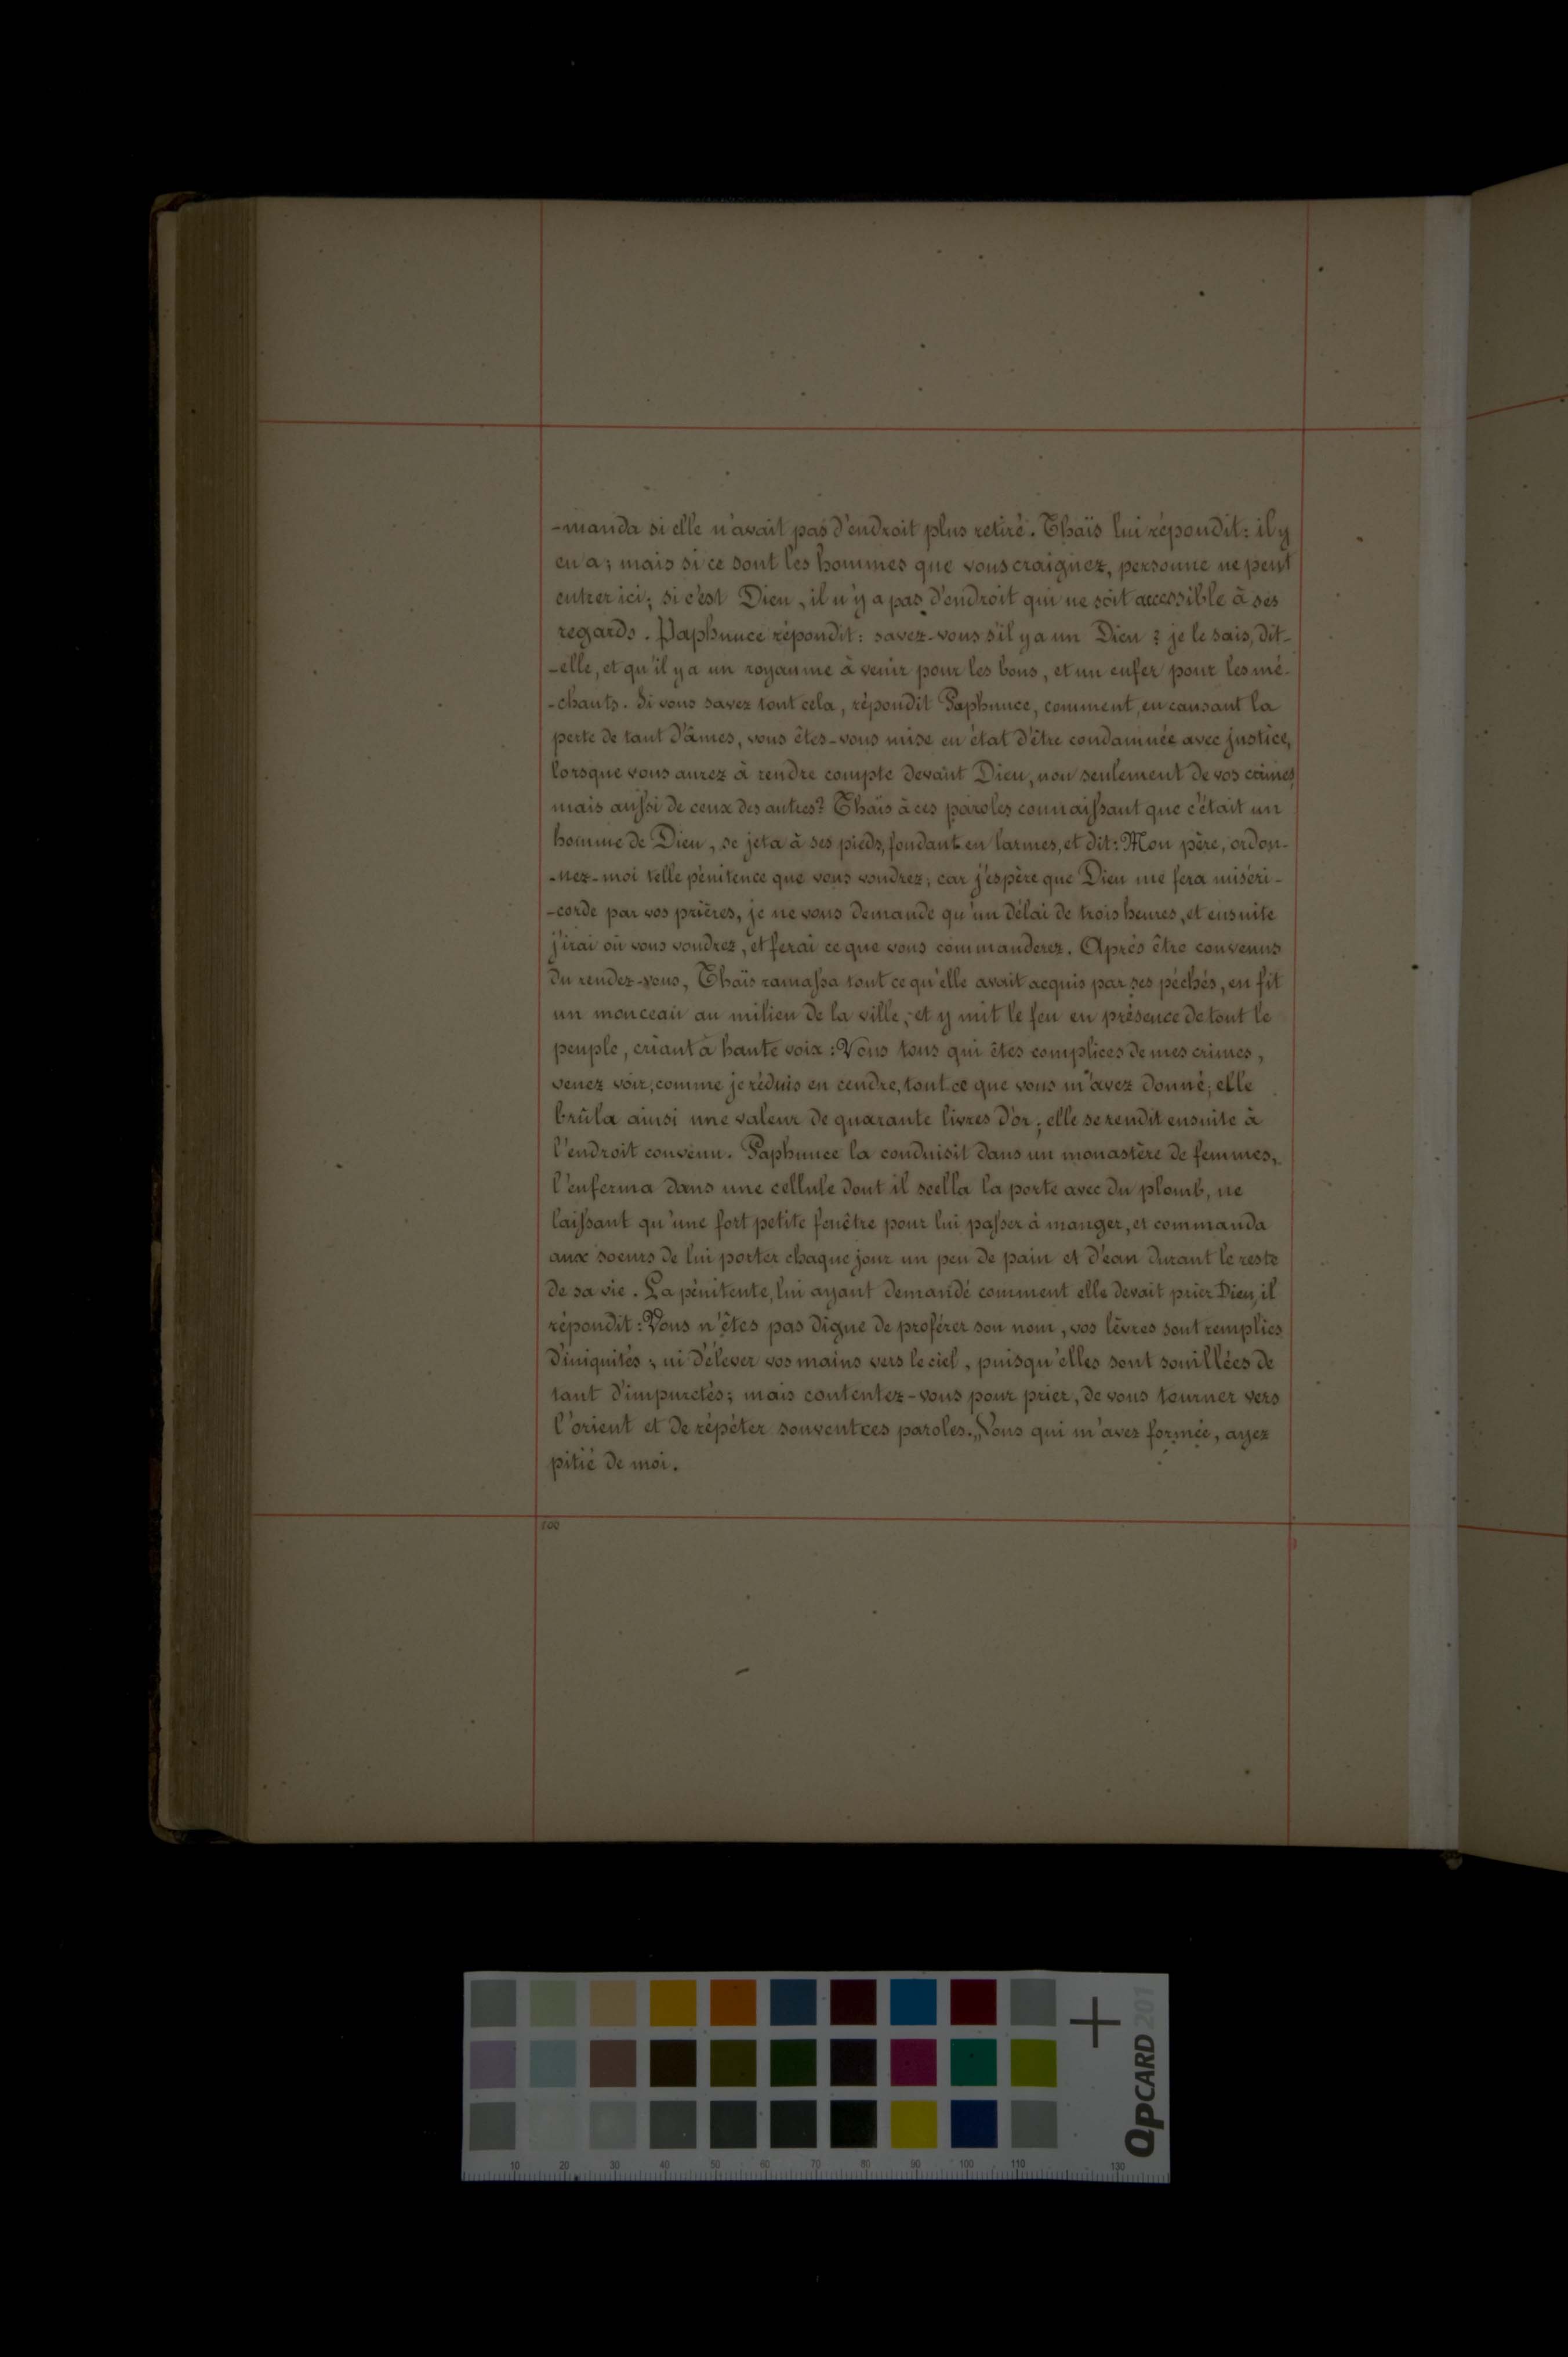 -manda si elle n'avait pas d'endroit plus retiré. Thaïs lui répondit: il y
en a; mais si ce sont les hommes que vous craignez, personne ne peut
entrer ici; si c'est Dieu, il n'y a pas d'endroit qui ne soit accessible à ses
regards. Paphnuce répondit: savez-vous s'il y a un Dieu? je le sais, dit-
-elle, et qu'il y a un royaume à venir pour les bons, et un enfer pour les mé-
-chants. Si vous savez tout cela, répondit Paphnuce, comment, en causant la
perte de tant d'âmes, vous êtes-vous mise en état d'être condamnée avec justice,
lorsque vous aurez à rendre compte devant Dieu, non seulement de vos crimes,
mais aussi de ceux des autres? Thaïs à ces paroles connaissant que c'était un
homme de Dieu, se jeta à ses pieds, fondant en larmes, et dit: Mon père, ordon-
-nez-moi telle pénitence que vous voudrez; car j'espère que Dieu me fera miséri-
-corde par vos prières, je ne vous demande qu'un délai de trois heures, et ensuite
j'irai où vous voudrez, et ferai ce que vous commanderez. Après être convenus
du rendez-vous, Thaïs ramassa tout ce qu'elle avait acquis par ses péchés, en fit
un monceau au milieu de la ville, et y mit le feu en présence de tout le
peuple, criant à haute voix: Vous tous qui êtes complices de mes crimes,
venez voir, comme je réduis en cendre, tout ce que vous m'avez donné; elle
brûla ainsi une valeur de quarante livres d'or; elle se rendit ensuite à
l'endroit convenu. Paphnuce la conduisit dans un monastère de femmes,
l'enferma dans une cellule dont il scella la porte avec du plomb, ne
laissant qu'une fort petite fenêtre pour lui passer à manger, et commanda
aux soeurs de lui porter chaque jour un peu de pain et d'eau durant le reste
de sa vie. La pénitente, lui ayant demandé comment elle devait prier Dieu, il
répondit: Vous n'êtes pas digne de proférer son nom, vos lèvres sont remplies
d'iniquités; ni d'élever vos mains vers le ciel, puisqu'elles sont souillées de
tant d'impuretés; mais contentez-vous pour prier, de vous tourner vers
l'orient et de répéter souvent ces paroles. „Vous qui m'avez formée, ayez
pitié de moi.
100
QPCARD 201
10 20 30 40 50 60 70 80 90 100 110 130